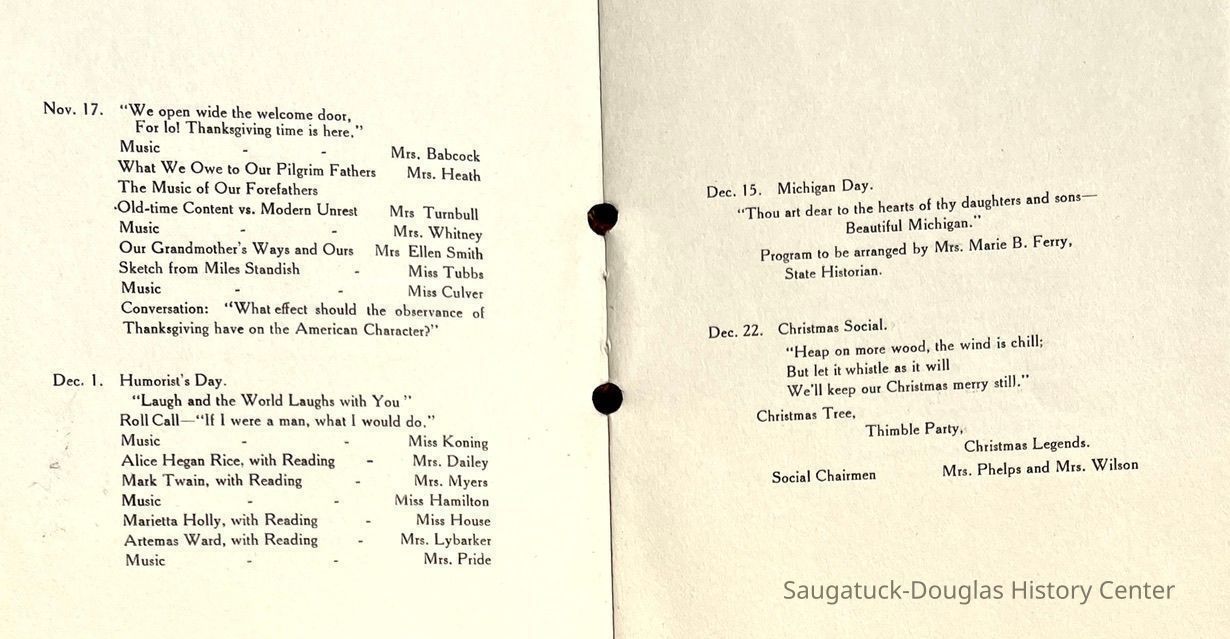 Nov. 17. "We open wide the welcome door,
For lo! Thanksgiving time is here."
Music - - Mrs. Babcock
What We Owe to Our Pilgrim Fathers Mrs. Heath
The Music of Our Forefathers
Old-time Content vs. Modern Unrest Mrs Turnbull
Music - - Mrs. Whitney
Our Grandmother's Ways and Ours Mrs Ellen Smith
Sketch from Miles Standish - Miss Tubbs
Music - - Miss Culver
Conversation: "What effect should the observance of
Thanksgiving have on the American Character?"
Dec. 1. Humorist's Day.
"Laugh and the World Laughs with You"
Roll Call—"If I were a man, what I would do."
Music - - Miss Koning
Alice Hegan Rice, with Reading - Mrs. Dailey
Mark Twain, with Reading - Mrs. Myers
Music - - Miss Hamilton
Marietta Holly, with Reading - Miss House
Artemas Ward, with Reading - Mrs. Lybarker
Music - - Mrs. Pride
Dec. 15. Michigan Day.
"Thou art dear to the hearts of thy daughters and sons—
Beautiful Michigan."
Program to be arranged by Mrs. Marie B. Ferry,
State Historian.
Dec. 22. Christmas Social.
"Heap on more wood, the wind is chill;
But let it whistle as it will
We'll keep our Christmas merry still."
Christmas Tree,
Thimble Party,
Christmas Legends.
Social Chairmen Mrs. Phelps and Mrs. Wilson
Saugatuck-Douglas History Center